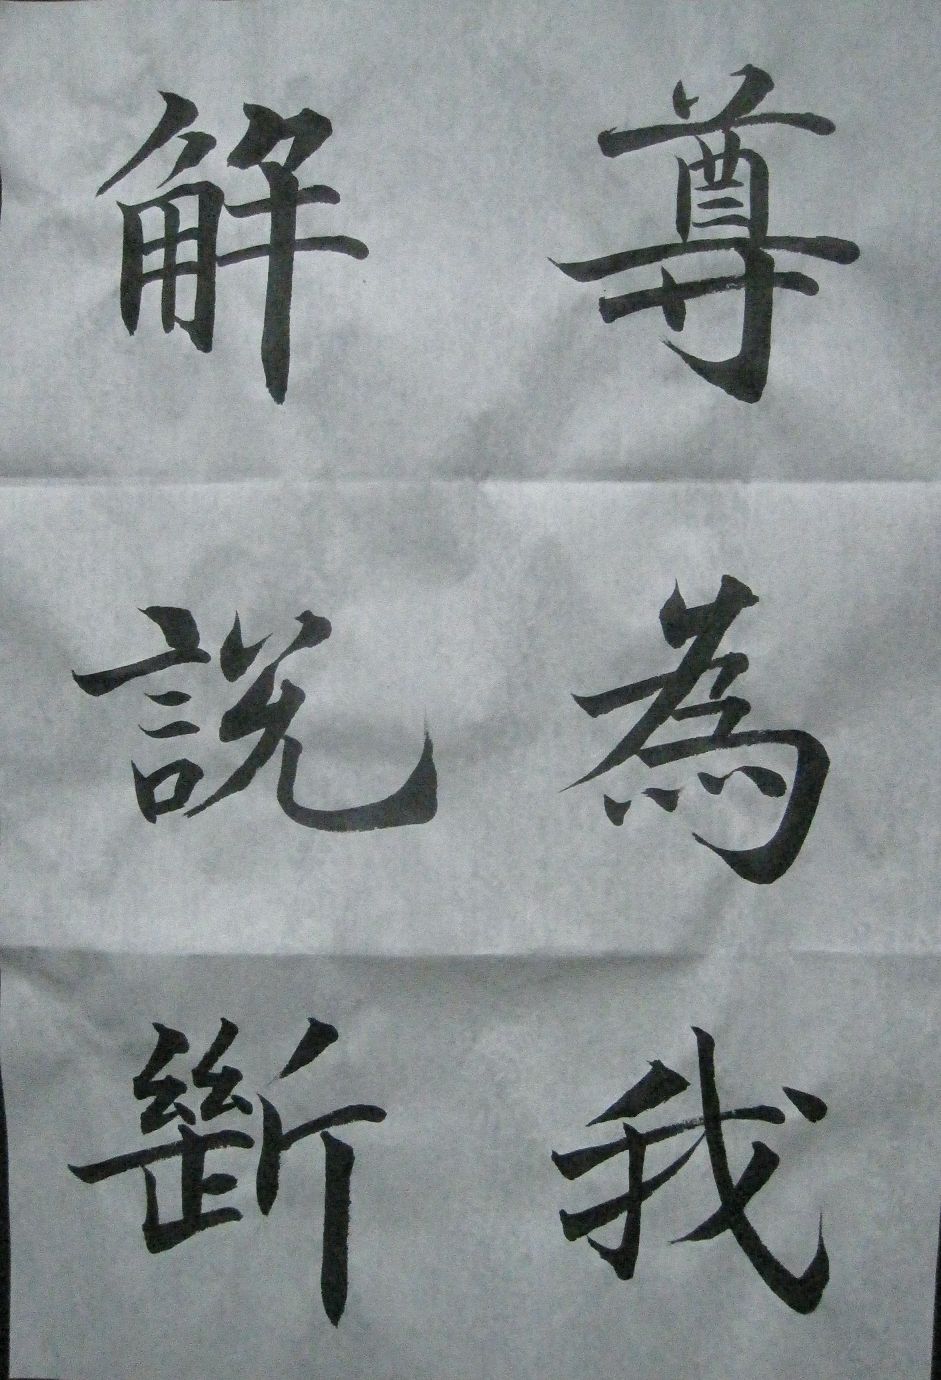 尊為我
解説斷